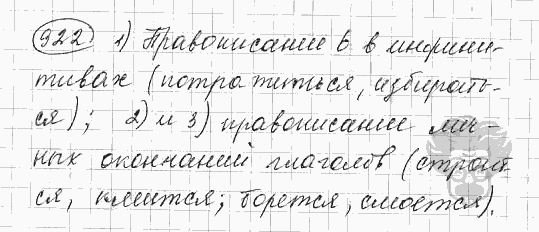 922 1) Правописание ь в инфини-
тивах (потратиться, избирать-
ся); 2) и 3) правописание лич-
ных окончаний глаголов (строит
ся, клеится; борется, смоется).